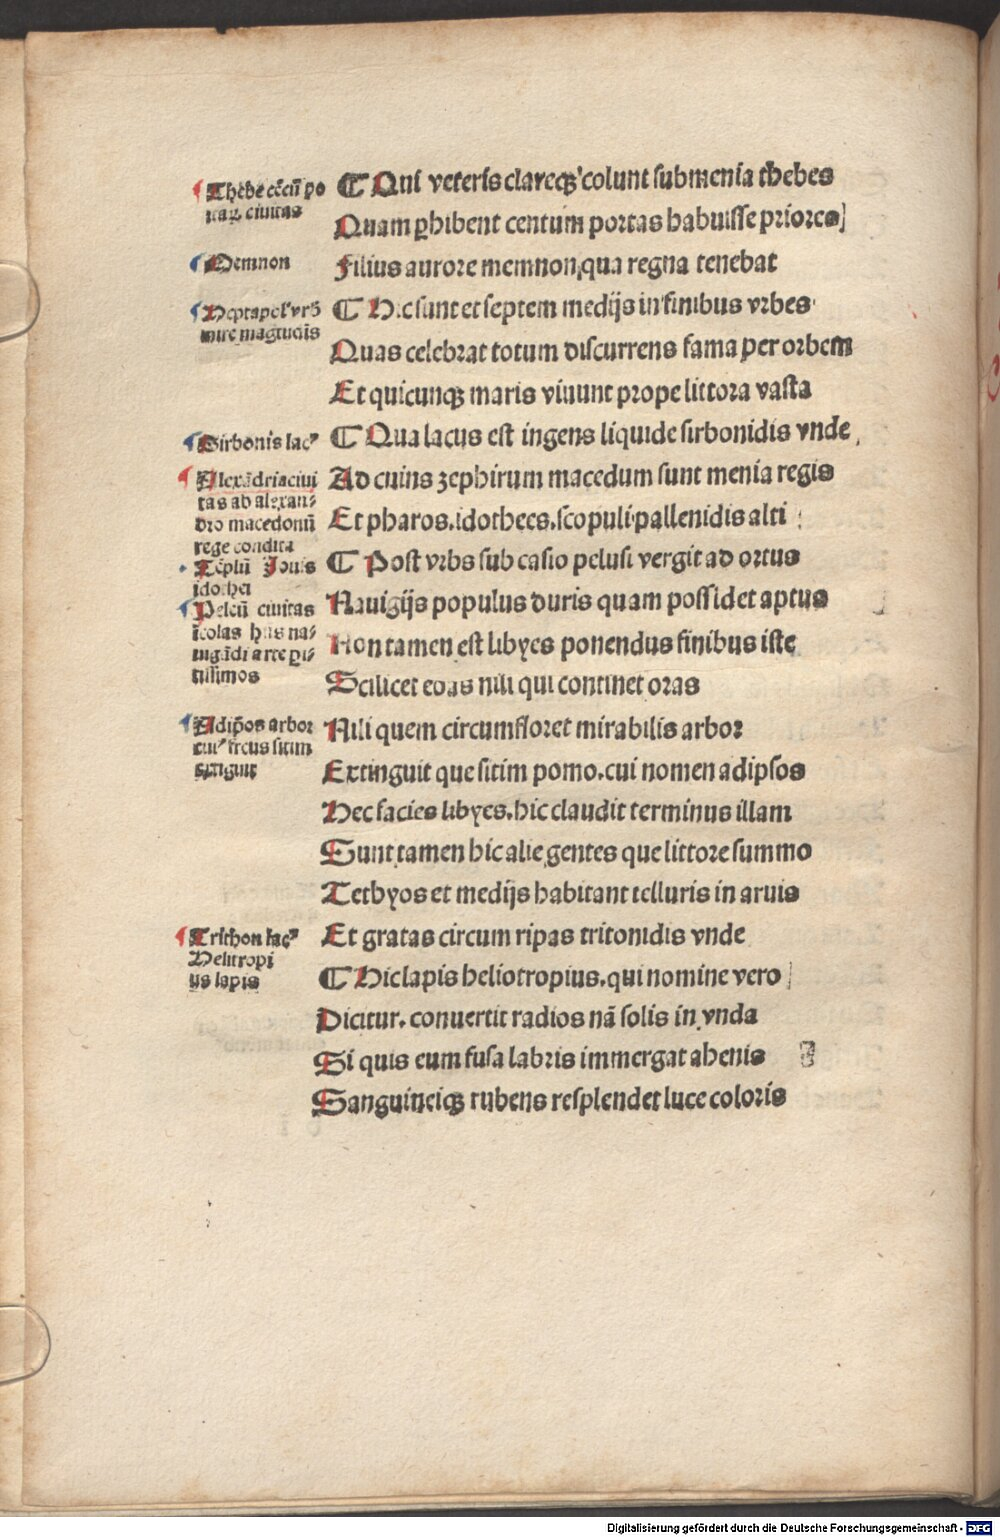 Thebe cētū po
rtaꝝ ciuitas
Memnon
Heptapol' vrb
mire magtudis
Sirbonis lacꝰ
Alexādria ciui
tas ab alexan-
dro macedonū
rege condita
Tēplū Iouis
idothei
Peleū ciuitas
īcolas hūs na-
uigādi arte pi-
tissimos
Adip̄os arbor
cuiꝰ frcus sitim
extiguit
Trithon lacꝰ
Helitropi
us lapis
¶ Qui veteris clareqꝫ colunt sub menia thebes
Quam ꝑhibent centum portas habuisse priores
Filius aurore memnon, qua regna tenebat
¶ Hic sunt et septem medijs in finibus vrbes
Quas celebrat totum discurrens fama per orbem
Et quicunqꝫ maris viuunt prope littora vasta
¶ Qua lacus est ingens liquide sirbonidis vnde
Ad cuius zephirum macedum sunt menia regis
Et pharos. idothees. scopuli. pallenidis alti
¶ Post vrbs sub casio pelusi vergit ad ortus
Nauigijs populus duris quam possidet aptus
Non tamen est libyes ponendus finibus iste
Scilicet eoas nili qui continet oras
Nili quem circumfloret mirabilis arbor
Extinguit que sitim pomo. cui nomen adipsos
Hec facies libyes. hic claudit terminus illam
Sunt tamen hic alie gentes que littore summo
Tethyos et medijs habitant telluris in aruis
Et gratas circum ripas tritonidis vnde
¶ Hic lapis heliotropius. qui nomine vero
Dicitur. conuertit radios nā solis in vnda
Si quis eum fusa labris immergat ahenis
Sanguineiqꝫ rubens resplendet luce coloris
Digitalisierung gefördert durch die Deutsche Forschungsgemeinschaft - DFG